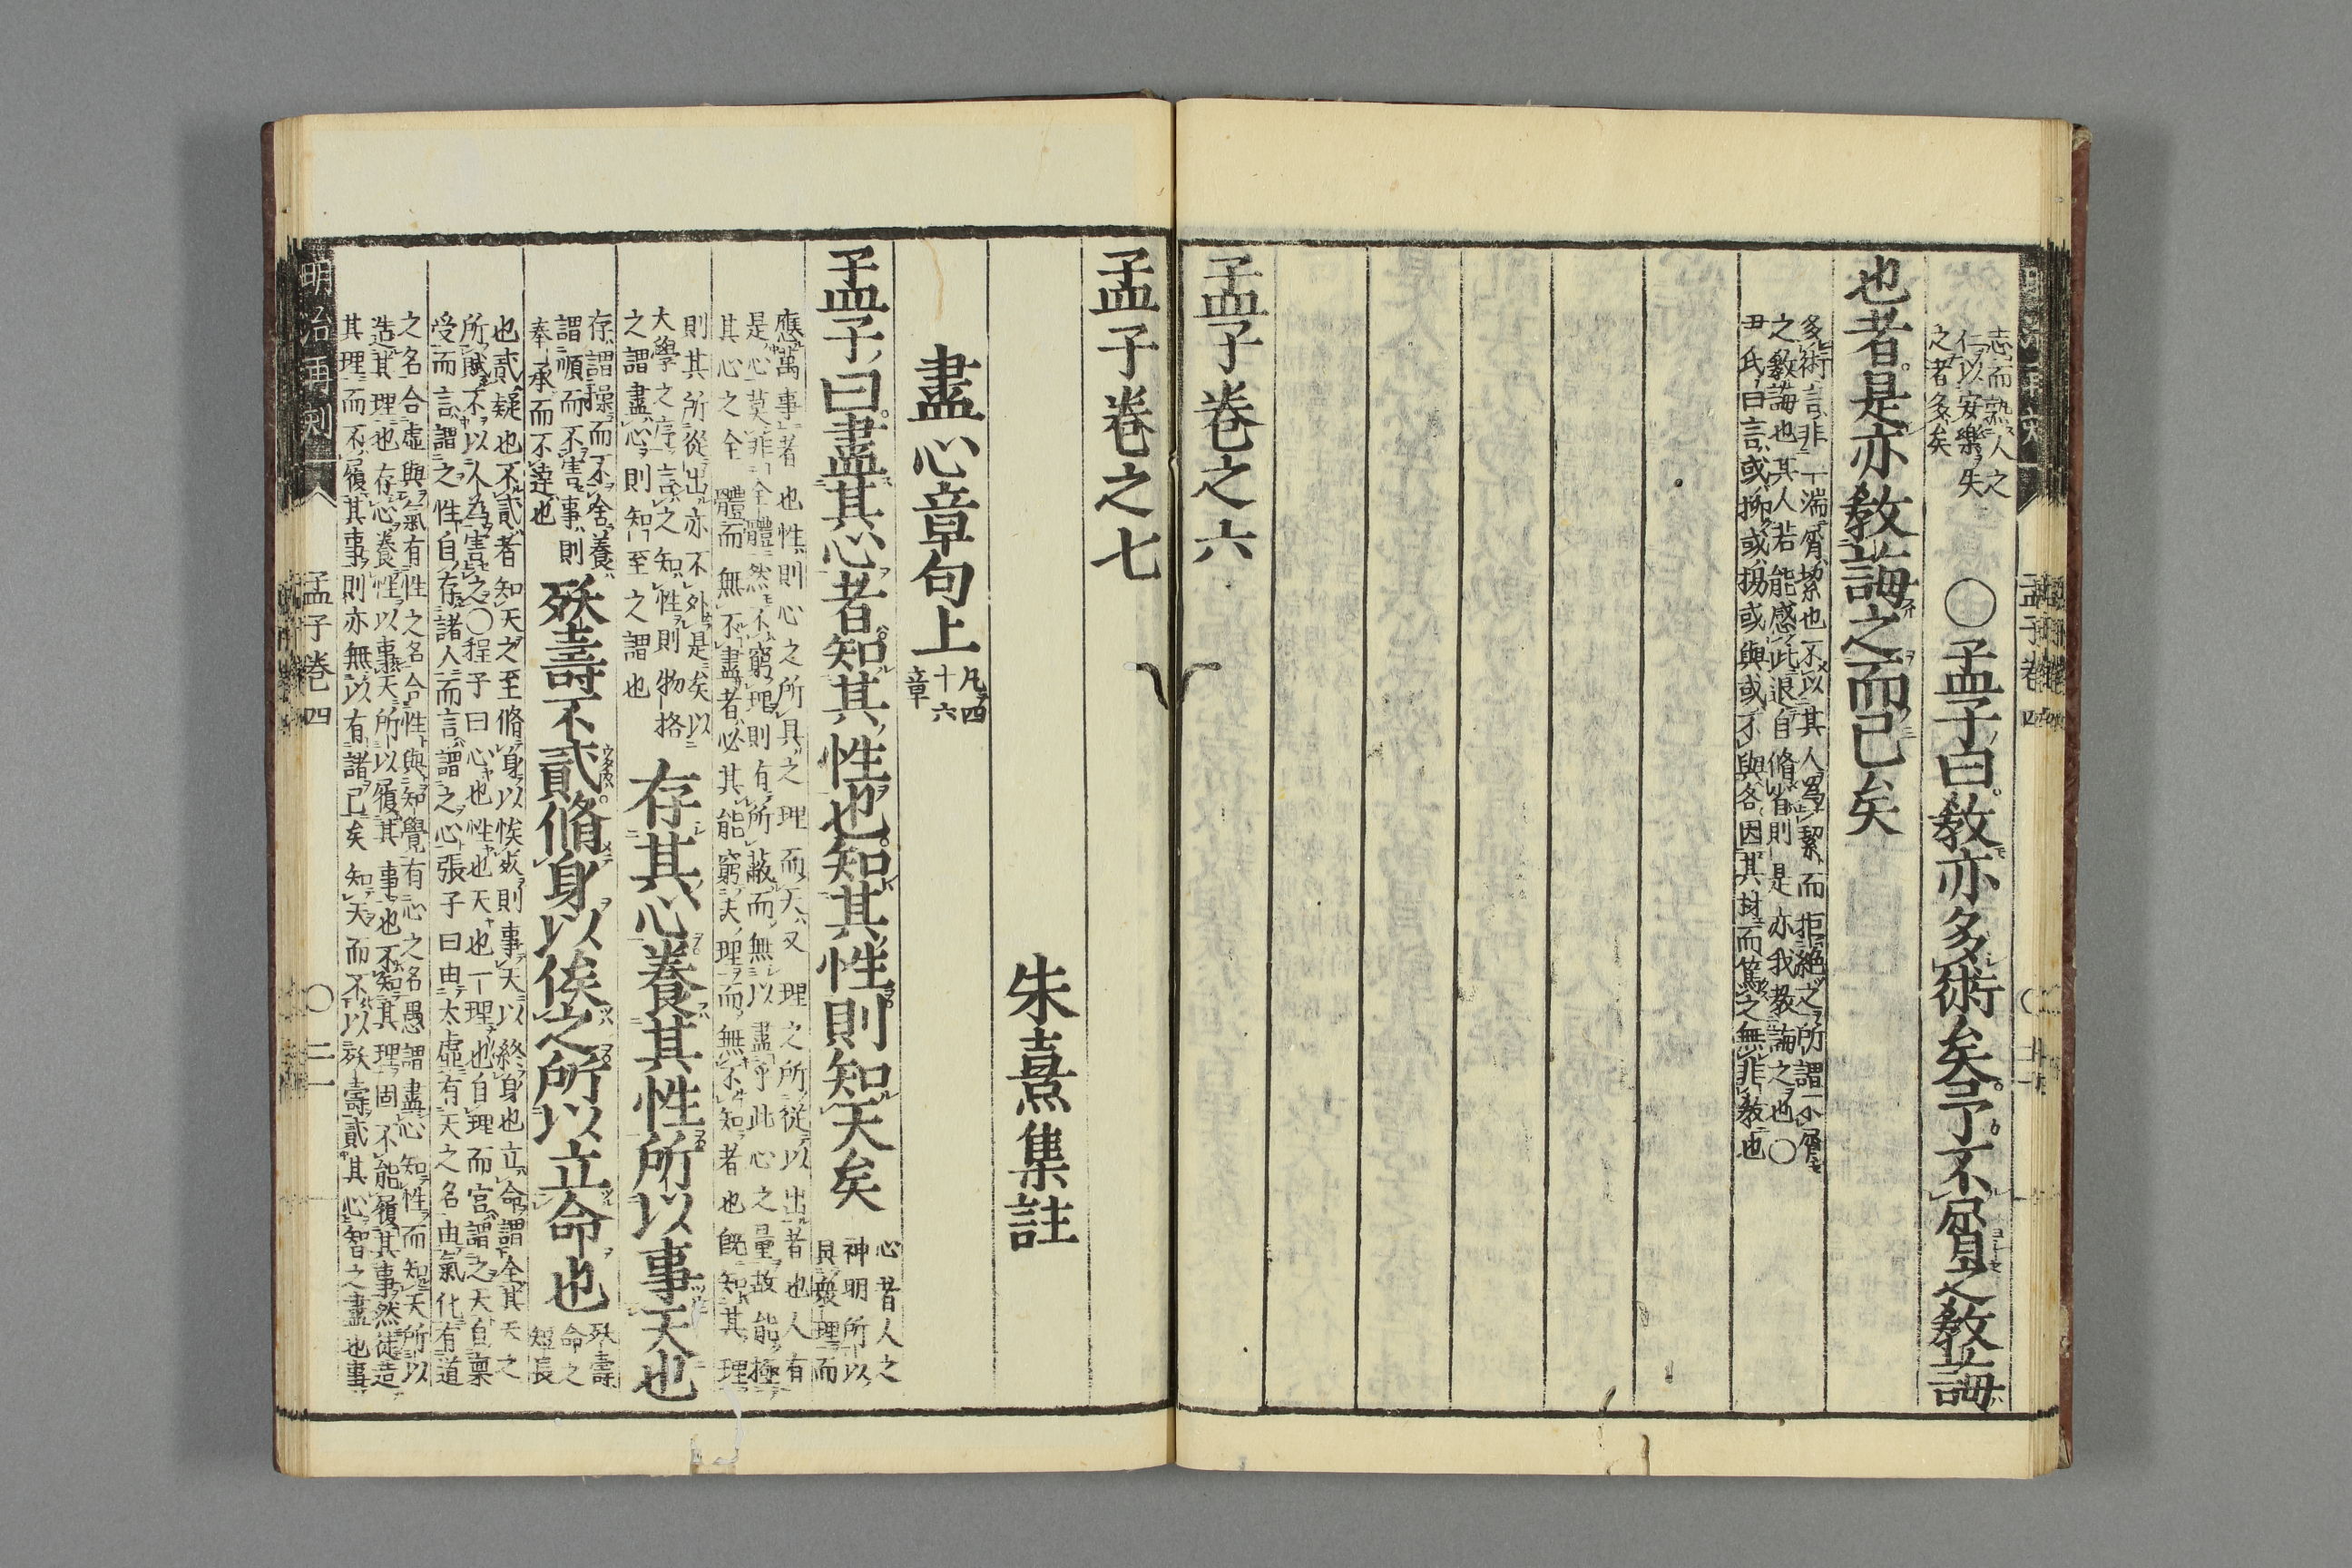 志而熟人之
仁以安樂失
之者多矣
○孟子曰教亦多術矣予不屑之教誨
也者是亦教誨之而已矣
多術言非一端屑絜也不以其人爲絜而拒絶之所謂不屑
之教誨也其人若能感此退自脩省則是亦我教誨之也○
尹氏曰言或抑或揚或與或不與各因其材而篤之無非教也
孟子巻之六
孟子巻之七
朱熹集註
盡心章句上
凡四
十六
章
孟子曰盡其心者知其性也知其性則知天矣
心者人之
神明所以
具衆理而
應萬事者也性則心之所具之理而天又理之所從以出者也人有
是心莫非全體然不窮理則有所蔽而無以盡乎此心之量故能極
其心之全體而無不盡者必其能窮夫理而無不知者也既知其理
則其所從出亦不外是矣以
大學之序言之知性則物格
之謂盡心則知至之謂也
存其心養其性所以事天也
存謂操而不舍養
謂順而不害事則
奉承而不違也
殀壽不貳脩身以俟之所以立命也
殀壽
命之
短長
也貳疑也不貳者知天之至脩身以俟死則事天以終身也立命謂全其天之
所賦不以人為害之○程子曰心也性也天也一理也自理而言謂之天自稟
受而言謂之性自存諸人而言謂之心張子曰由太虚有天之名由氣化有道
之名合虚與氣有性之名合性與知覺有心之名愚謂盡心知性而知天所以
造其理也存心養性以事天所以履其事也不知其理固不能履其事然徒造
其理而不履其事則亦無以有諸己矣知天而不以殀壽貳其心智之盡也事
明治再刻
孟子巻四
○二一